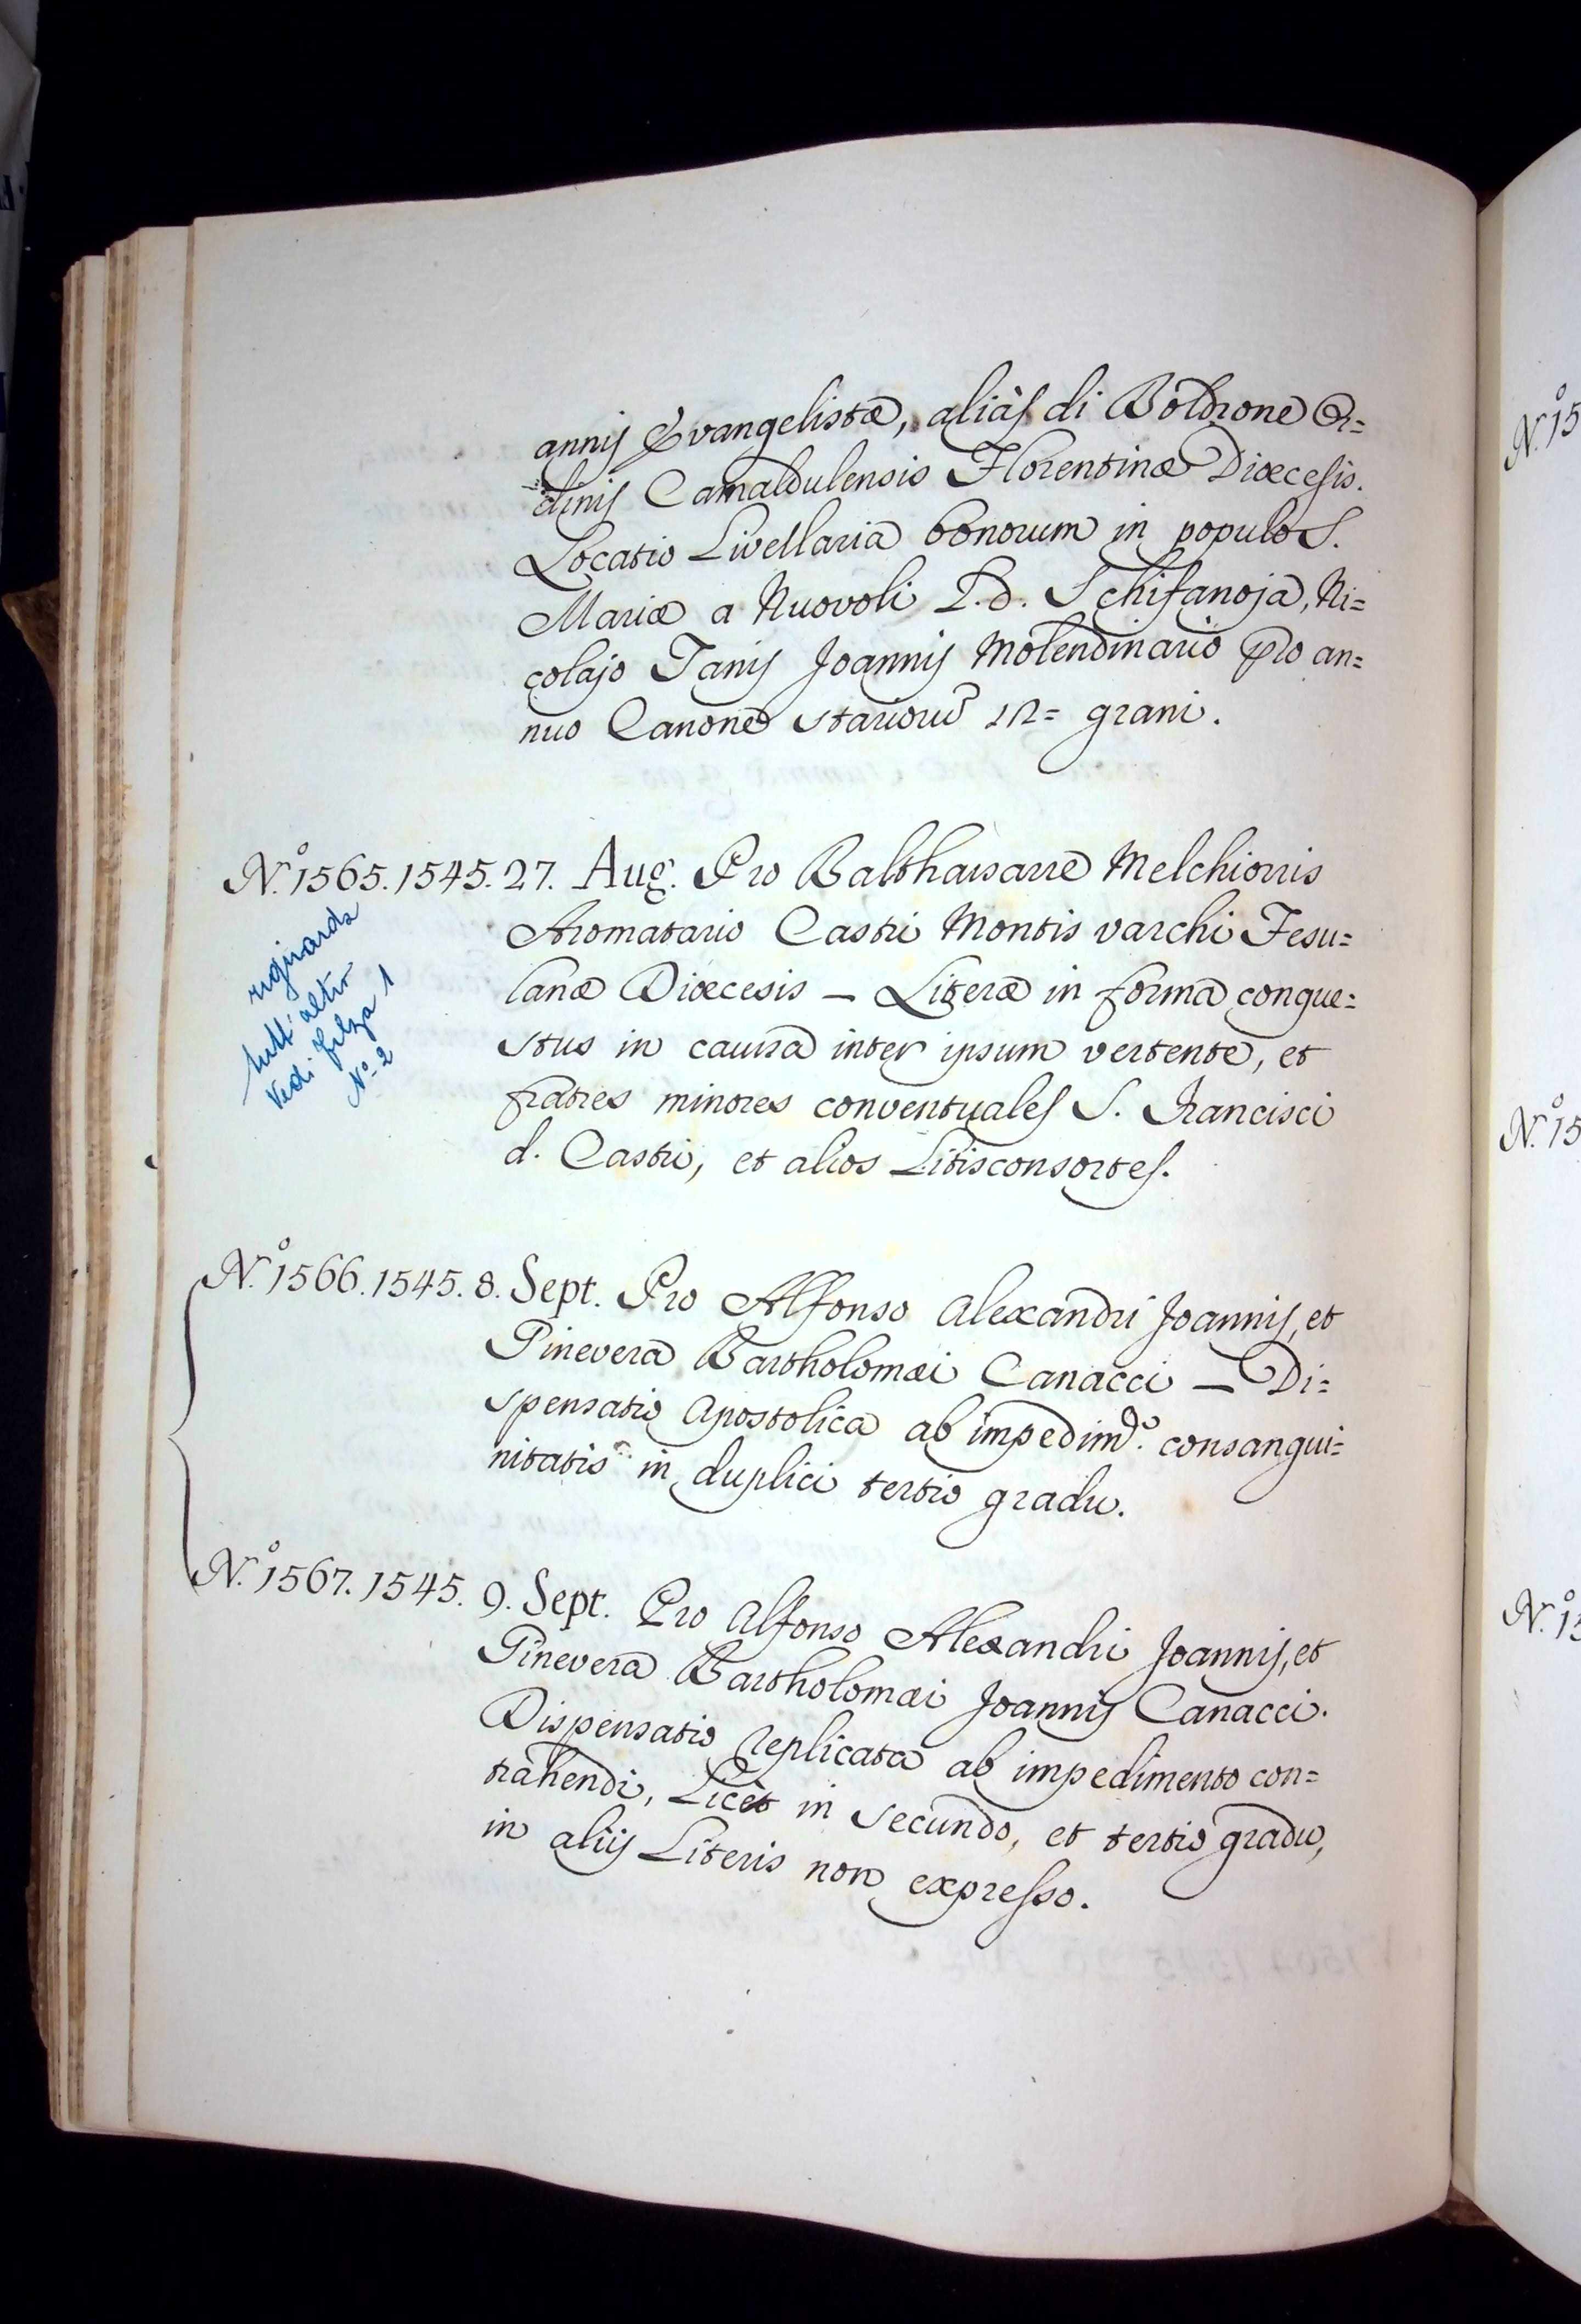 annis Evangelistæ, aliàs di Boldrone Or=
dinis Camaldulensis Florentinæ Diœcesis.
Locatio Livellaria bonorum in populo S.
Mariæ a Nuovoli L. d. Schifanoja, Ni=
colajo Tanis Joannis Molendinario pro an=
nuo Canone starioru grani.
N.º 1565. 1545. 27. Aug. Pro Balthassarre Melchiorris
Aromatario Castri Montis varchi Fesu=
lanæ Diœcesis — Literæ in forma conque=
stus in caussa inter ipsum vertente, et
fratres minores conventuales S. Francisci
d. Castri, et alios Litisconsortes.
riguarda
tutt'altro
Vedi filza 1
Nº 2
N.º 1566. 1545. 8. Sept. Pro Alfonso Alexandri Joannis, et
Pinevera Bartholomæi Canacci — Di=
spensatio Apostolica ab impedimᵗᵒ. consangui=
nitatis in duplici tertio gradu.
N.º 1567. 1545. 9. Sept. Pro Alfonso Alexandri Joannis, et
Pinevera Bartholomæi Joannis Canacci.
Dispensatio replicata ab impedimento con=
trahendi, Licèt in secundo, et tertio gradu,
in aliis Literis non expresso.
N.º 15
N.º 15
N.º 15